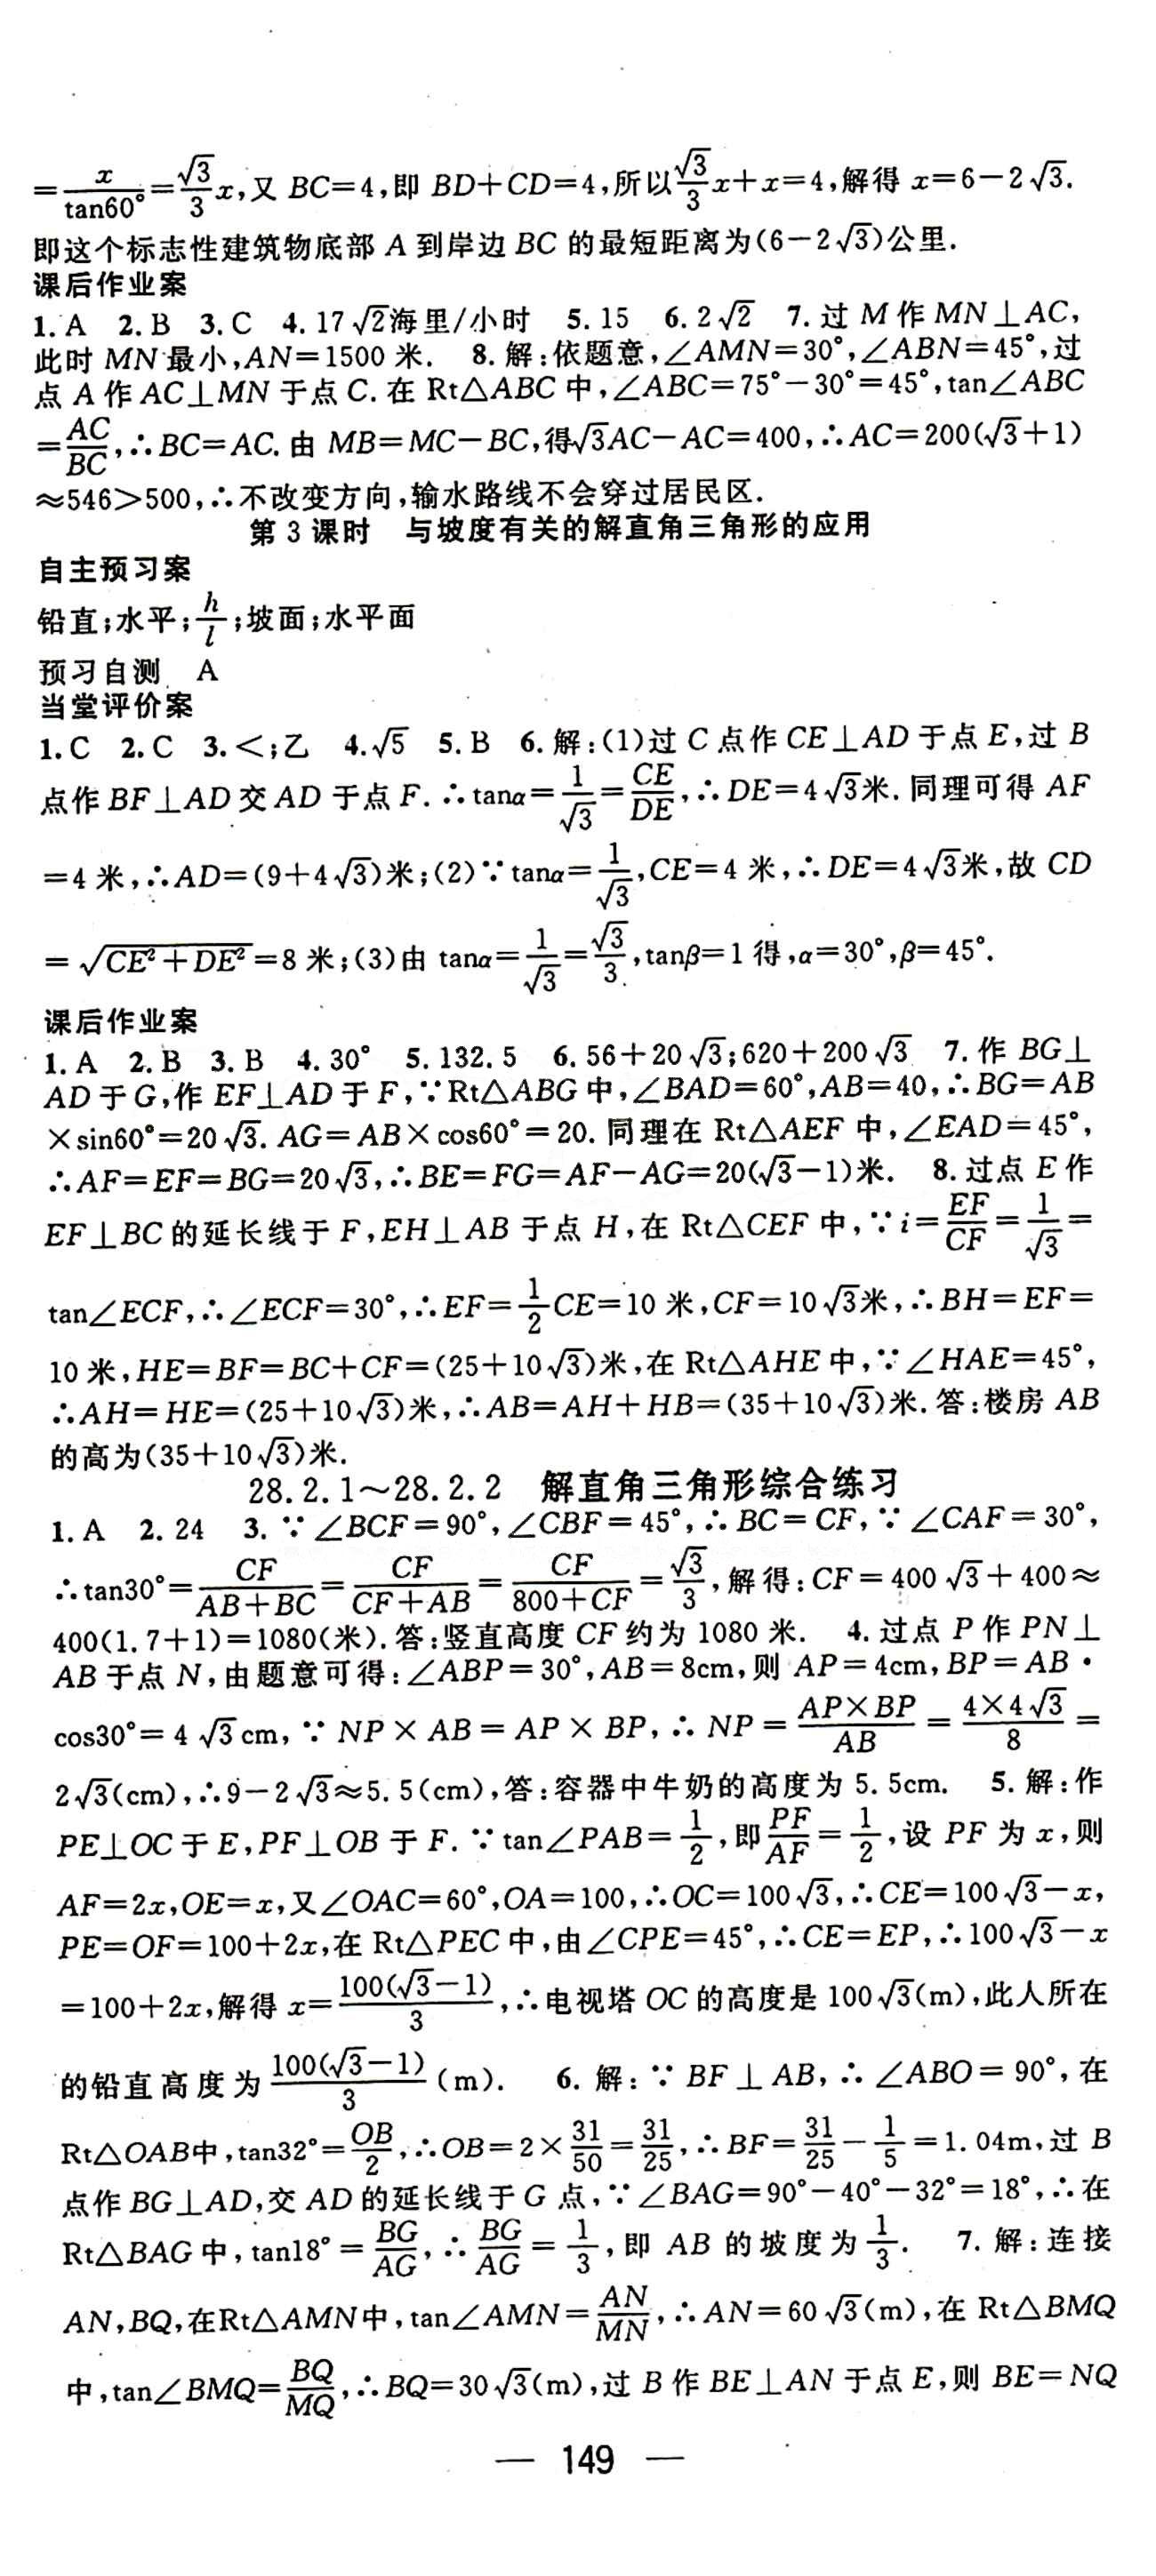 =x/tan60°=√3/3x,又 BC=4,即 BD+CD=4,所以√3/3x+x=4,解得 x=6-2√3.
即这个标志性建筑物底部 A 到岸边 BC 的最短距离为(6-2√3)公里.
课后作业案
1. A 2. B 3. C 4. 17√2海里/小时 5. 15 6. 2√2 7. 过 M 作 MN⊥AC,
此时 MN 最小,AN=1500 米. 8. 解:依题意,∠AMN=30°,∠ABN=45°,过
点 A 作 AC⊥MN 于点 C. 在 Rt△ABC 中,∠ABC=75°-30°=45°,tan∠ABC
=AC/BC,∴BC=AC. 由 MB=MC-BC,得√3AC-AC=400,∴AC=200(√3+1)
≈546>500,∴不改变方向,输水路线不会穿过居民区.
第 3 课时 与坡度有关的解直角三角形的应用
自主预习案
铅直;水平;h/l;坡面;水平面
预习自测 A
当堂评价案
1. C 2. C 3. <;乙 4. √5 5. B 6. 解:(1)过 C 点作 CE⊥AD 于点 E,过 B
点作 BF⊥AD 交 AD 于点 F. ∴tanα=1/√3=CE/DE,∴DE=4√3米. 同理可得 AF
=4 米,∴AD=(9+4√3)米;(2)∵tanα=1/√3,CE=4 米,∴DE=4√3米,故 CD
=√(CE²+DE²)=8 米;(3)由 tanα=1/√3=√3/3,tanβ=1 得,α=30°,β=45°.
课后作业案
1. A 2. B 3. B 4. 30° 5. 132.5 6. 56+20√3;620+200√3 7. 作 BG⊥
AD 于 G,作 EF⊥AD 于 F,∵Rt△ABG 中,∠BAD=60°,AB=40,∴BG=AB
×sin60°=20√3. AG=AB×cos60°=20. 同理在 Rt△AEF 中,∠EAD=45°,
∴AF=EF=BG=20√3,∴BE=FG=AF-AG=20(√3-1)米. 8. 过点 E 作
EF⊥BC 的延长线于 F,EH⊥AB 于点 H,在 Rt△CEF 中,∵i=EF/CF=1/√3=
tan∠ECF,∴∠ECF=30°,∴EF=1/2CE=10 米,CF=10√3米,∴BH=EF=
10 米,HE=BF=BC+CF=(25+10√3)米,在 Rt△AHE 中,∵∠HAE=45°,
∴AH=HE=(25+10√3)米,∴AB=AH+HB=(35+10√3)米. 答:楼房 AB
的高为(35+10√3)米.
28.2.1~28.2.2 解直角三角形综合练习
1. A 2. 24 3. ∵∠BCF=90°,∠CBF=45°,∴BC=CF,∵∠CAF=30°,
∴tan30°=CF/(AB+BC)=CF/(CF+AB)=CF/(800+CF)=√3/3,解得:CF=400√3+400≈
400(1.7+1)=1080(米). 答:竖直高度 CF 约为 1080 米. 4. 过点 P 作 PN⊥
AB 于点 N,由题意可得:∠ABP=30°,AB=8cm,则 AP=4cm,BP=AB·
cos30°=4√3cm,∵NP×AB=AP×BP,∴NP=(AP×BP)/AB=(4×4√3)/8=
2√3(cm),∴9-2√3≈5.5(cm),答:容器中牛奶的高度为 5.5cm. 5. 解:作
PE⊥OC 于 E,PF⊥OB 于 F. ∵tan∠PAB=1/2,即PF/AF=1/2,设 PF 为 x,则
AF=2x,OE=x,又∠OAC=60°,OA=100,∴OC=100√3,∴CE=100√3-x,
PE=OF=100+2x,在 Rt△PEC 中,由∠CPE=45°,∴CE=EP,∴100√3-x
=100+2x,解得 x=100(√3-1)/3,∴电视塔 OC 的高度是 100√3(m),此人所在
的铅直高度为 100(√3-1)/3 (m). 6. 解:∵BF⊥AB,∴∠ABO=90°,在
Rt△OAB中,tan32°=OB/2,∴OB=2×31/50=31/25,∴BF=31/25-1/5=1.04m,过 B
点作 BG⊥AD,交 AD 的延长线于 G 点,∵∠BAG=90°-40°-32°=18°,∴在
Rt△BAG 中,tan18°=BG/AG,∴BG/AG=1/3,即 AB 的坡度为1/3. 7. 解:连接
AN,BQ,在Rt△AMN中,tan∠AMN=AN/MN,∴AN=60√3(m),在 Rt△BMQ
中,tan∠BMQ=BQ/MQ,∴BQ=30√3(m),过 B 作 BE⊥AN 于点 E,则 BE=NQ
— 149 —